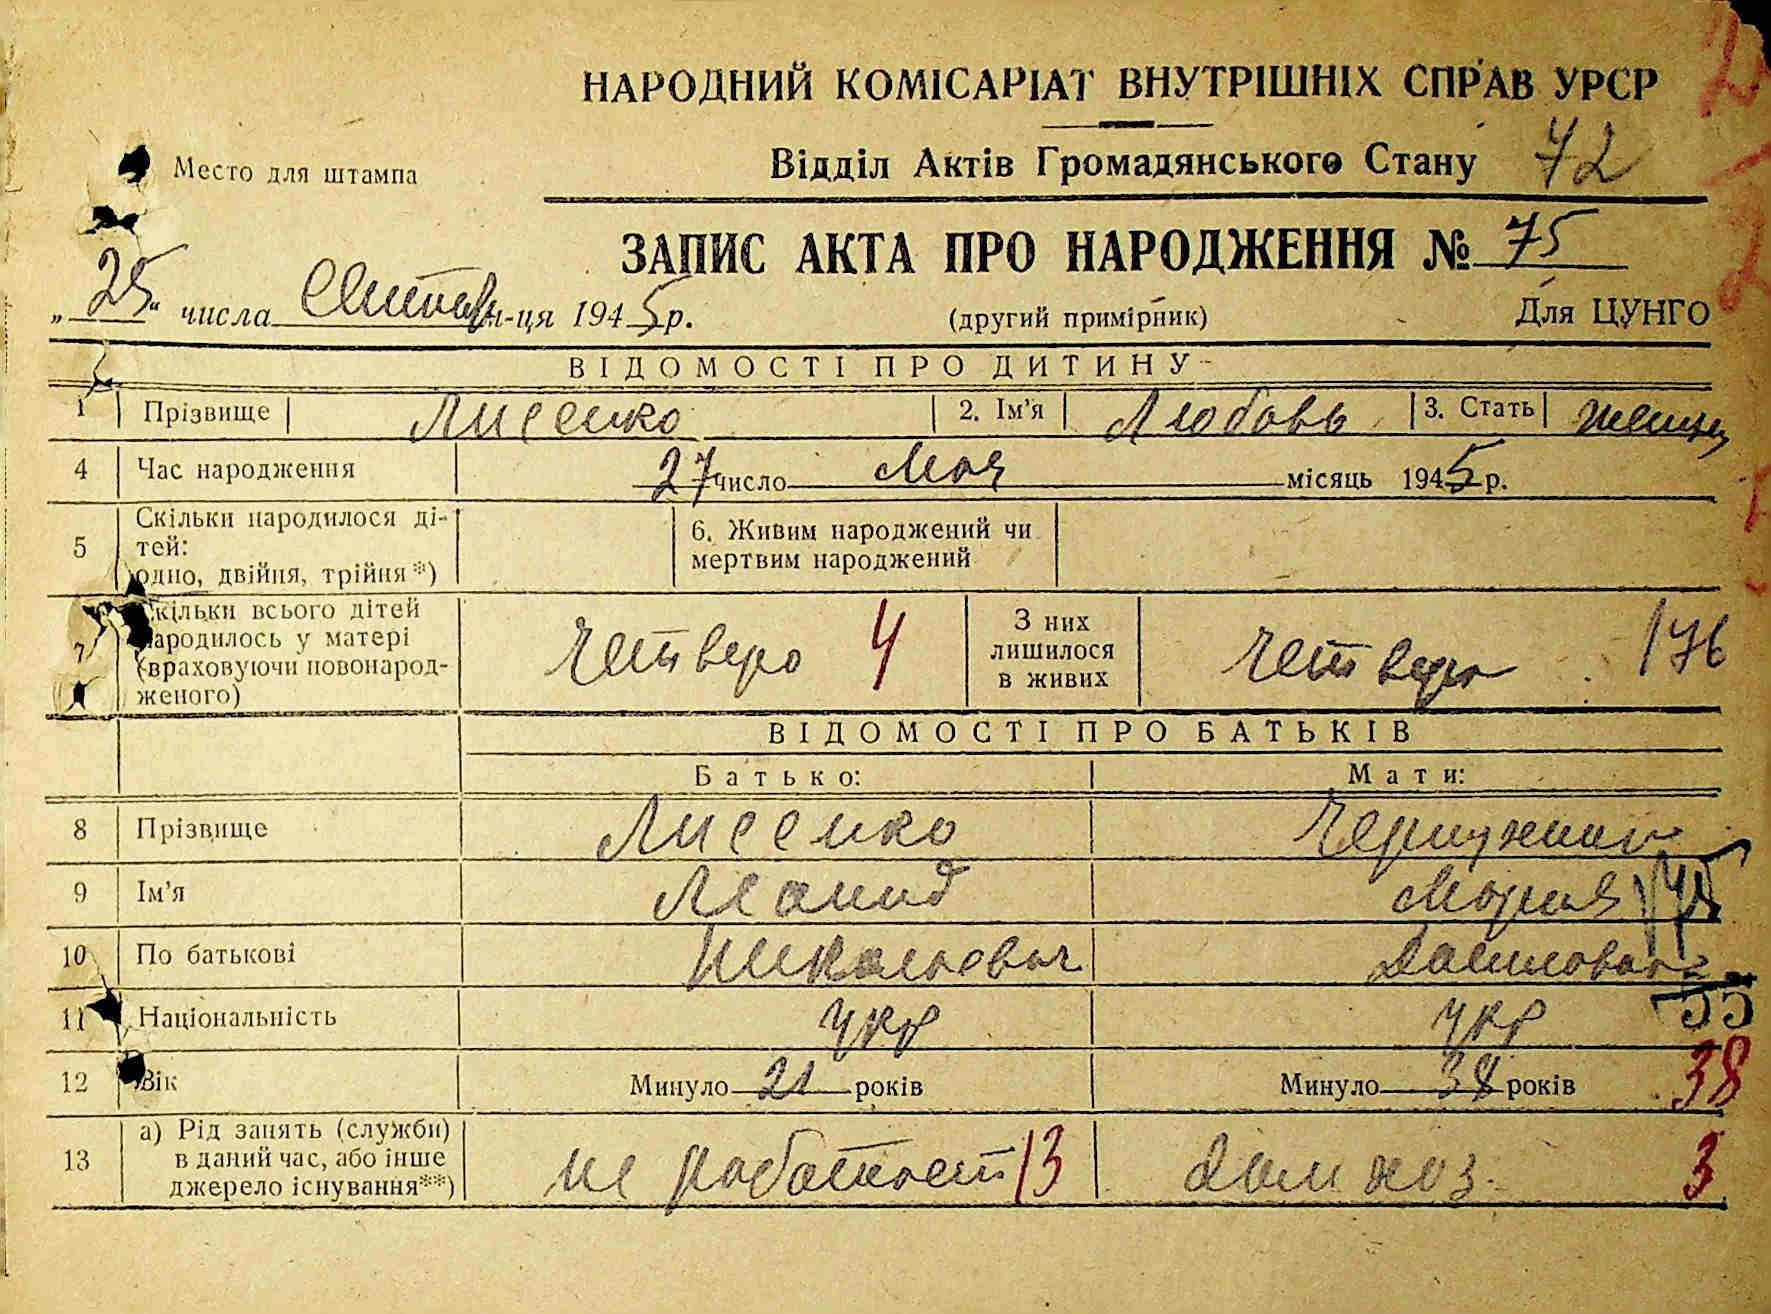 НАРОДНИЙ КОМІСАРІАТ ВНУТРІШНІХ СПРАВ УРСР
Место для штампа
Відділ Актів Громадянського Стану 72
ЗАПИС АКТА ПРО НАРОДЖЕННЯ № 75
„25“ числа м-ця 1945 р.
(другий примірник) Для ЦУНГО
ВІДОМОСТІ ПРО ДИТИНУ
1 Прізвище Лисенко 2. Ім'я Любовь 3. Стать
4 Час народження 27 число Мая місяць 1945 р.
5 Скільки народилося ді-
тей:
одно, двійня, трійня*)
6. Живим народжений чи
мертвим народжений
7 Скільки всього дітей
народилось у матері
(враховуючи новонарод-
женого)
Четверо 4
З них
лишилося
в живих
Четверо 176
ВІДОМОСТІ ПРО БАТЬКІВ
Батько: Мати:
8 Прізвище Лисенко
9 Ім'я Леонид Мария
10 По батькові Николаевич Даниловна
11 Національність укр укр
12 Вік Минуло 21 років Минуло 38 років 38
13 а) Рід занять (служби)
в даний час, або інше
джерело існування**)
не работает 13 дом хоз. 3